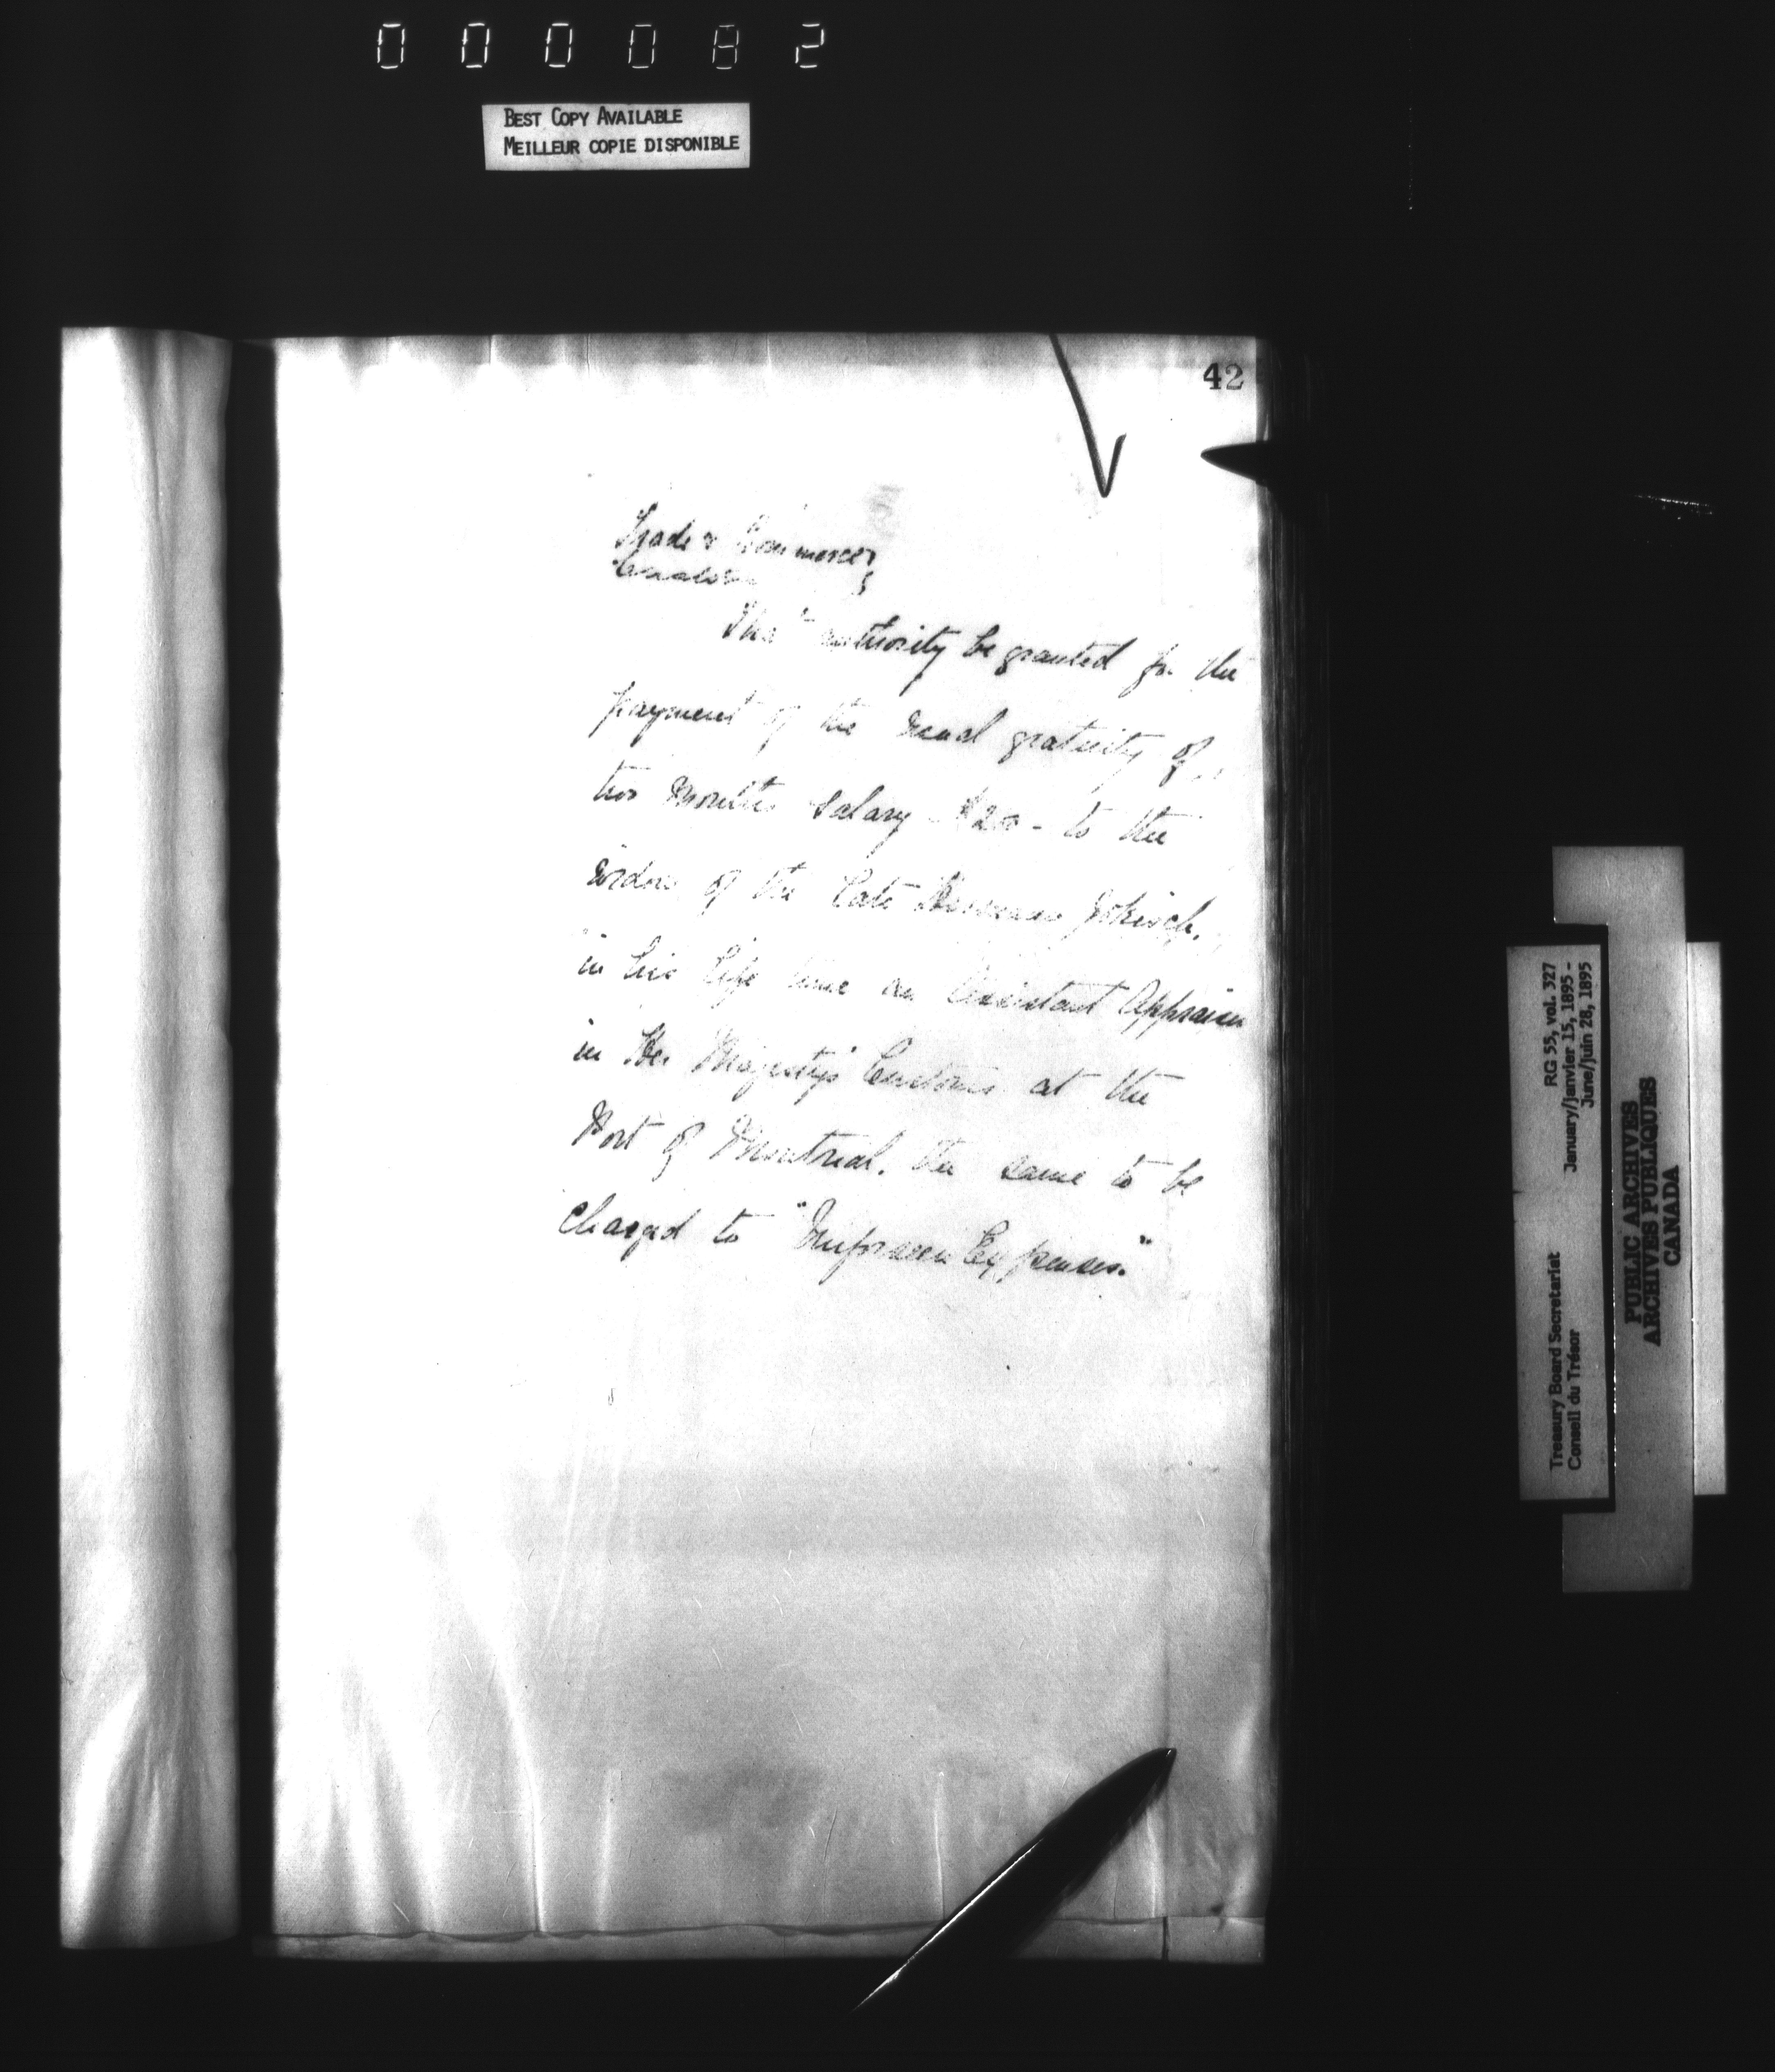 000082
BEST COPY AVAILABLE
MEILLEUR COPIE DISPONIBLE
42
Trade & Commerce
Customs
That authority be granted for the
payment of the usual gratuity of
two months salary - $200 - to the
widow of the late Herman
in his life time an Assistant Appraiser
in Her Majesty's Customs at the
Port of Montreal. The same to be
charged to "Unforseen Expenses."
Treasury Board Secretariat RG 55, vol. 327
Conseil du Trésor January/janvier 15, 1895 -
June/juin 28, 1895
PUBLIC ARCHIVES
ARCHIVES PUBLIQUES
CANADA